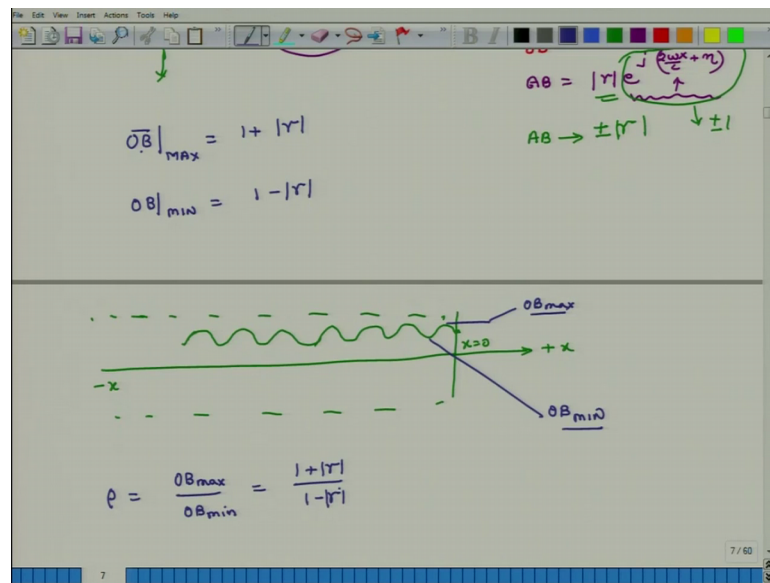 File Edit View Insert Actions Tools Help
AB = |r| e^{j(2ωx/c + η)}
AB → ±|r| ↓ ±1
OB|MAX = 1 + |r|
OB|MIN = 1 - |r|
OBmax
x=0
+x
-x
OBMIN
ρ = OBmax / OBmin = 1+|r| / 1-|r|
7 / 60
7